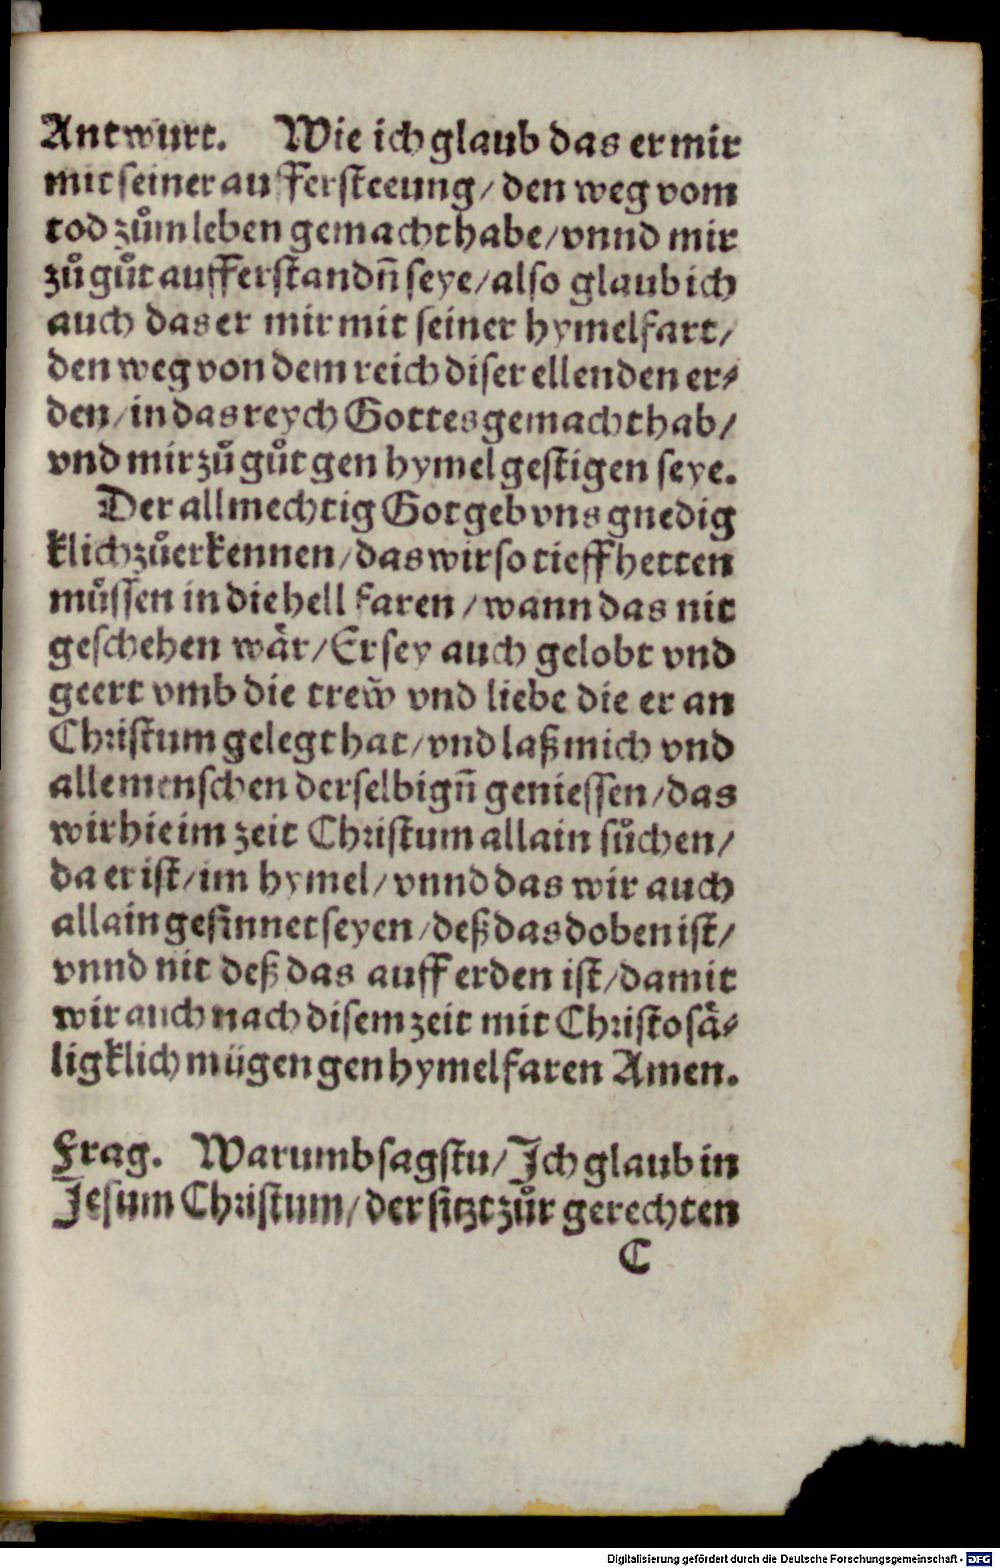 Antwurt. Wie ich glaub das er mir
mit seiner auffersteeung/ den weg vom
tod zům leben gemacht habe/ vnnd mir
zů gůt aufferstandn̄ seye/ also glaub ich
auch das er mir mit seiner hymelfart/
den weg von dem reich diser ellenden er⸗
den/ in das reych Gottes gemacht hab/
vnd mir zů gůt gen hymel gestigen seye.
Der allmechtig Got geb vns gnedig
klich zůerkennen/ das wir so tieff hetten
můssen in die hell faren/ wann das nit
geschehen wår/ Er sey auch gelobt vnd
geert vmb die trew̃ vnd liebe die er an
Christum gelegt hat/ vnd laß mich vnd
alle menschen derselbign̄ geniessen/ das
wir hie im zeit Christum allain sůchen/
da er ist/ im hymel/ vnnd das wir auch
allain gesinnet seyen/ deß das doben ist/
vnnd nit deß das auff erden ist/ damit
wir auch nach disem zeit mit Christo så⸗
ligklich mügen gen hymel faren Amen.
Frag. Warumb sagstu/ Ich glaub in
Jesum Christum/ der sitzt zůr gerechten
C
Digitalisierung gefördert durch die Deutsche Forschungsgemeinschaft - DFG